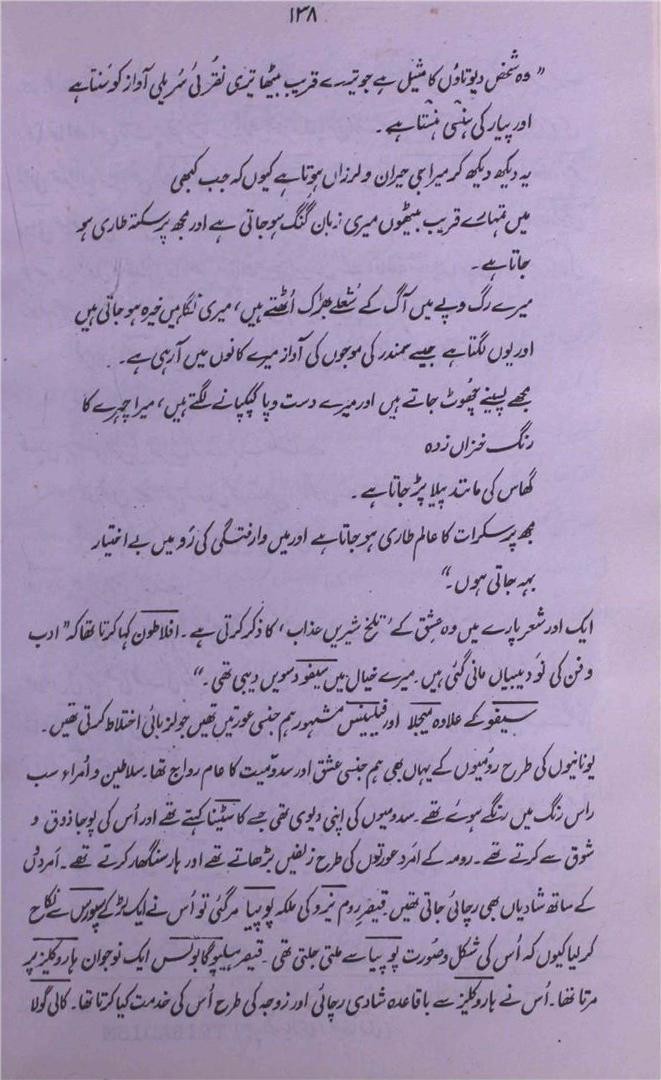 ۱۳۸
”وہ شخص دیوتاؤں کا مثیل ہے جو تیرے قریب بیٹھا تیری نقرئی سُریلی آواز کو سُنتا ہے
اور پیار کی ہنسی ہنستا ہے۔
یہ دیکھ دیکھ کر میرا جی حیران و لرزاں ہوتا ہے کیوں کہ جب کبھی
میں تمہارے قریب بیٹھوں میری زبان گنگ ہو جاتی ہے اور مجھ پر سکتہ طاری ہو
جاتا ہے۔
میرے رگ و پے میں آگ کے شعلے بھڑک اُٹھتے ہیں، میری نگاہیں خیرہ ہو جاتی ہیں
اور یوں لگتا ہے جیسے سمندر کی موجوں کی آواز میرے کانوں میں آ رہی ہے۔
مجھے پسینے چھوٹ جاتے ہیں اور میرے دست و پا کپکپانے لگتے ہیں، میرا چہرے کا
رنگ خزاں زدہ
گھاس کی مانند پیلا پڑ جاتا ہے۔
مجھ پر سکرات کا عالم طاری ہو جاتا ہے اور میں وارفتگی کی رَو میں بے اختیار
بہہ جاتی ہوں۔“
ایک اور شعر پارے میں وہ عشق کے ’تلخ شیریں عذاب‘ کا ذکر کرتی ہے۔ افلاطون کہا کرتا تھا کہ ”ادب
و فن کی نو دیبیاں مانی گئی ہیں۔ میرے خیال میں سیفو دسویں دیبی تھی۔“
سیفو کے علاوہ میجلا اور فیلینس مشہور ہم جنسی عورتیں تھیں جو لزبائی اختلاط کرتی تھیں۔
یونانیوں کی طرح رومیوں کے یہاں بھی ہم جنسی عشق اور سدومیت کا عام رواج تھا۔ سلاطین و اُمراء سب
اس رنگ میں رنگے ہوئے تھے۔ سدومیوں کی اپنی دیوی تھی جسے کاسٹینا کہتے تھے اور اُس کی پوجا ذوق و
شوق سے کرتے تھے۔ رومہ کے امرد عورتوں کی طرح زلفیں بڑھاتے تھے اور ہار سنگھار کرتے تھے۔ اَمردوں
کے ساتھ شادیاں بھی رچائی جاتی تھیں۔ قیصر روم نیرو کی ملکہ پوپیا مر گئی تو اُس نے ایک لڑکے سپورس سے نکاح
کر لیا کیوں کہ اُس کی شکل و صورت پوپیا سے ملتی جلتی تھی۔ قیصر ہیلیوگابولس ایک نوجوان ہاروکلیز پر
مرتا تھا۔ اُس نے ہاروکلیز سے باقاعدہ شادی رچائی اور زوجہ کی طرح اُس کی خدمت کیا کرتا تھا۔ کالی گولا